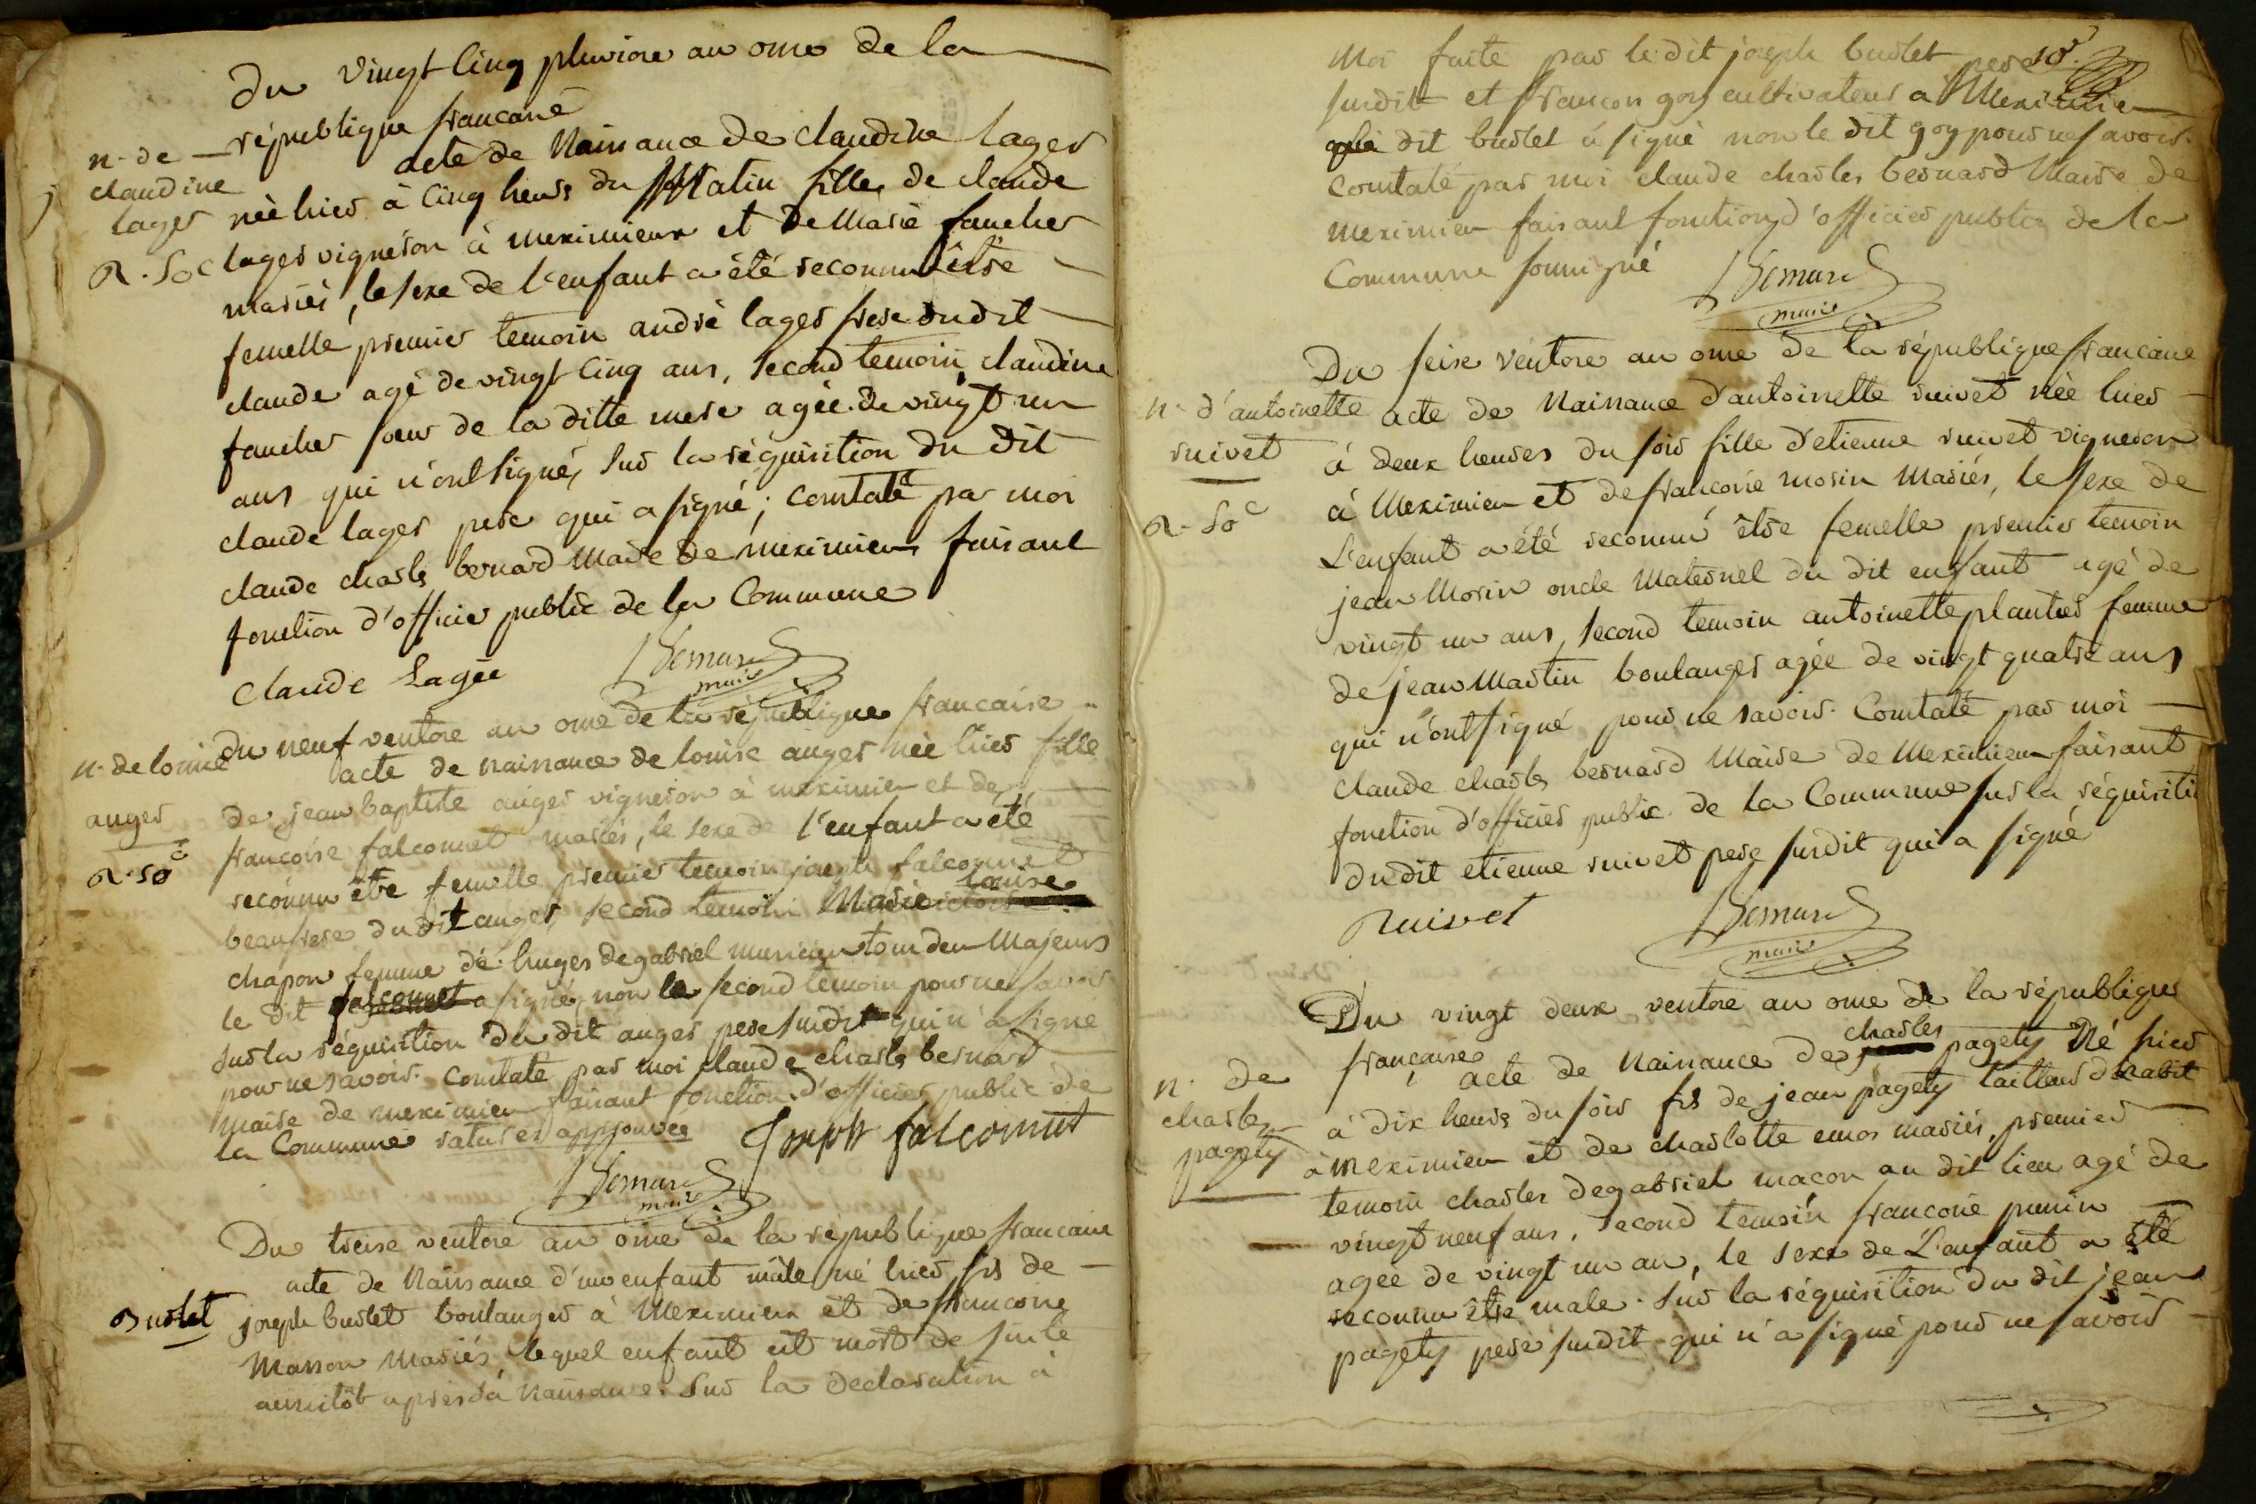 Du Vingt Cinq pluviose an onze de la
république francaise
n. de claudine lager
R. 50c
acte de Naissance de claudine lager
née hier à Cinq heurs du Matin fille de claude
lager vigneron à meximieux et de Marie faucher
mariés, le sexe de l'enfant a été reconnu être
femelle premier temoin andré lager frere du dit
claude agé de vingt Cinq ans, second temoin claudine
faucher soeur de la ditte mere agée de vingt un
ans qui n'ont signé, sur la réquisition du dit
claude lager pere qui a signé; constaté par moi
claude charles bernard Maire de meximieux faisant
fonction d'officier public de la Commune
Claude Lagée Bernard
maire
n. de louise
auger
R. 50c
du neuf ventose an onze de la république francaise
acte de naissance de louise auger née hier fille
de jean baptiste auger vigneron à meximieux et de
francoise falconnet mariés, le sexe de l'enfant a été
reconnu être femelle premier temoin joseph falconnet
beaufrere du dit auger, second temoin Marie louise
chapon femme de huges degabriel musicien tous deux Majeurs
le dit falconnet a signé, non le second temoin pour ne savoir
sur la réquisition du dit auger pere susdit qui n'a signé
pour ne savoir. Constaté par moi claude charles bernard
maire de meximieux faisant fonction d'officier public de
la Commune ratures approuvée
Joseph falconnet
Bernard
maire
Burlet
Du treise ventose an onze de la république francaise
acte de Naissance d'un enfant mâle né hier fils de
joseph burlet boulanger à Meximieux et de francoise
Masson Mariés, lequel enfant est mort de suite
aussitôt après sa Naissance. Sur la declaration à
Moi faite par le dit joseph burlet pere
susdit et francois goy cultivateur à Meximieux
dit burlet a signé non le dit goy pour ne savoir.
Constaté par moi claude charles bernard Maire de
meximieux faisant fonction d'officier public de la
Commune soussigné
Bernard
maire
n. d'antoinette
ruivet
R. 50c
Du seise ventose an onze de la république francaise
acte de Naissance d'antoinette ruivet née hier
à deux heures du soir fille d'etienne ruivet vigneron
à Meximieux et de francoise morin Mariés, le sexe de
L'enfant a été reconnu être femelle premier temoin
jean Morin oncle Maternel du dit enfant agé de
vingt un ans, second temoin antoinette plantier femme
de jean Martin boulanger agée de vingt quatre ans
qui n'ont signé pour ne savoir. Constaté par moi
claude charles bernard Maire de Meximieux faisant
fonction d'officier public de la Commune sur la réquisitio
du dit etienne ruivet pere susdit qui a signé
Ruivet Bernard
maire
n. de
charles
pagety
Du vingt deux ventose an onze de la république
française
acte de Naissance de charles pagety Né hier
à dix heurs du soir fils de jean pagety tailleur d'habit
à meximieux et de charlotte emos mariés, premier
temoin charles degabriel macon au dit lieu agé de
vingt neuf ans, second temoin francoise
agée de vingt un an, le sexe de L'enfant a été
reconnu être male. Sur la réquisition du dit jean
pagety pere susdit qui n'a signé pour ne savoir